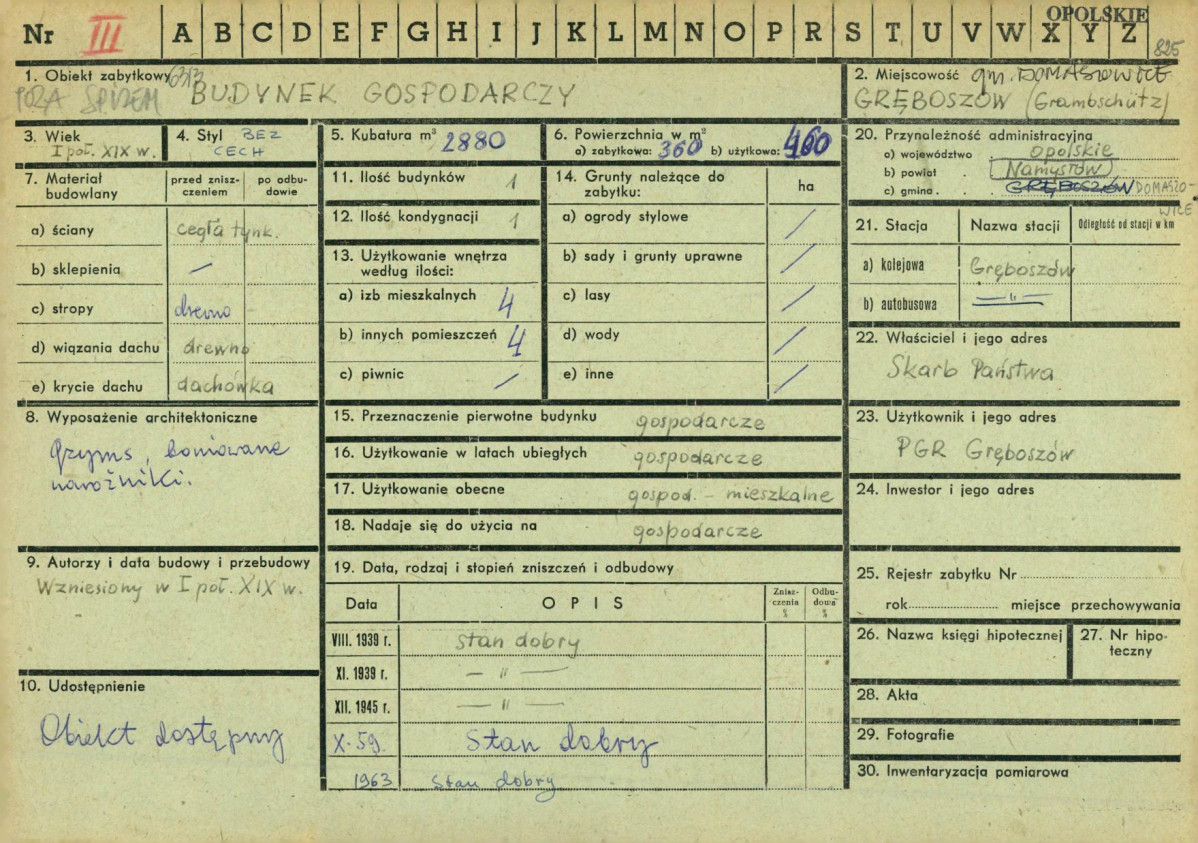 OPOLSKIE
Nr III A B C D E F G H I J K L M N O P R S T U V W X Y Z
825
1. Obiekt zabytkowy
POZA SPISEM BUDYNEK GOSPODARCZY
2. Miejscowość gm. DOMASZOWICE
GRĘBOSZÓW (Grambschütz)
3. Wiek
I poł. XIX w.
4. Styl BEZ
CECH
5. Kubatura m³ 2880
6. Powierzchnia w m²
a) zabytkowa: 360 b) użytkowa:
20. Przynależność administracyjna
a) województwo opolskie
b) powiat Namysłów
c) gmina GRĘBOSZÓW DOMASZO-
WICE
7. Materiał
budowlany
przed znisz-
czeniem
po odbu-
dowie
a) ściany cegła tynk.
b) sklepienia —
c) stropy drewno
d) wiązania dachu drewno
e) krycie dachu dachówka
11. Ilość budynków 1
12. Ilość kondygnacji 1
13. Użytkowanie wnętrza
według ilości:
a) izb mieszkalnych 4
b) innych pomieszczeń 4
c) piwnic /
14. Grunty należące do
zabytku:
ha
a) ogrody stylowe /
b) sady i grunty uprawne /
c) lasy /
d) wody /
e) inne /
21. Stacja Nazwa stacji Odległość od stacji w km
a) kolejowa Gręboszów
b) autobusowa — " —
22. Właściciel i jego adres
Skarb Państwa
8. Wyposażenie architektoniczne
Gzyms, boniowane
narożniki.
15. Przeznaczenie pierwotne budynku gospodarcze
16. Użytkowanie w latach ubiegłych gospodarcze
17. Użytkowanie obecne gospod. – mieszkalne
18. Nadaje się do użycia na gospodarcze
23. Użytkownik i jego adres
PGR Gręboszów
24. Inwestor i jego adres
9. Autorzy i data budowy i przebudowy
Wzniesiony w I poł. XIX w.
19. Data, rodzaj i stopień zniszczeń i odbudowy
Data OPIS
Znisz-
czenia
%
Odbu-
dowa
%
VIII. 1939 r. stan dobry
XI. 1939 r. — " —
XII. 1945 r. — " —
X-59 Stan dobry
1963 Stan dobry
25. Rejestr zabytku Nr
rok miejsce przechowywania
26. Nazwa księgi hipotecznej
27. Nr hipo-
teczny
10. Udostępnienie
Obiekt dostępny
28. Akta
29. Fotografie
30. Inwentaryzacja pomiarowa